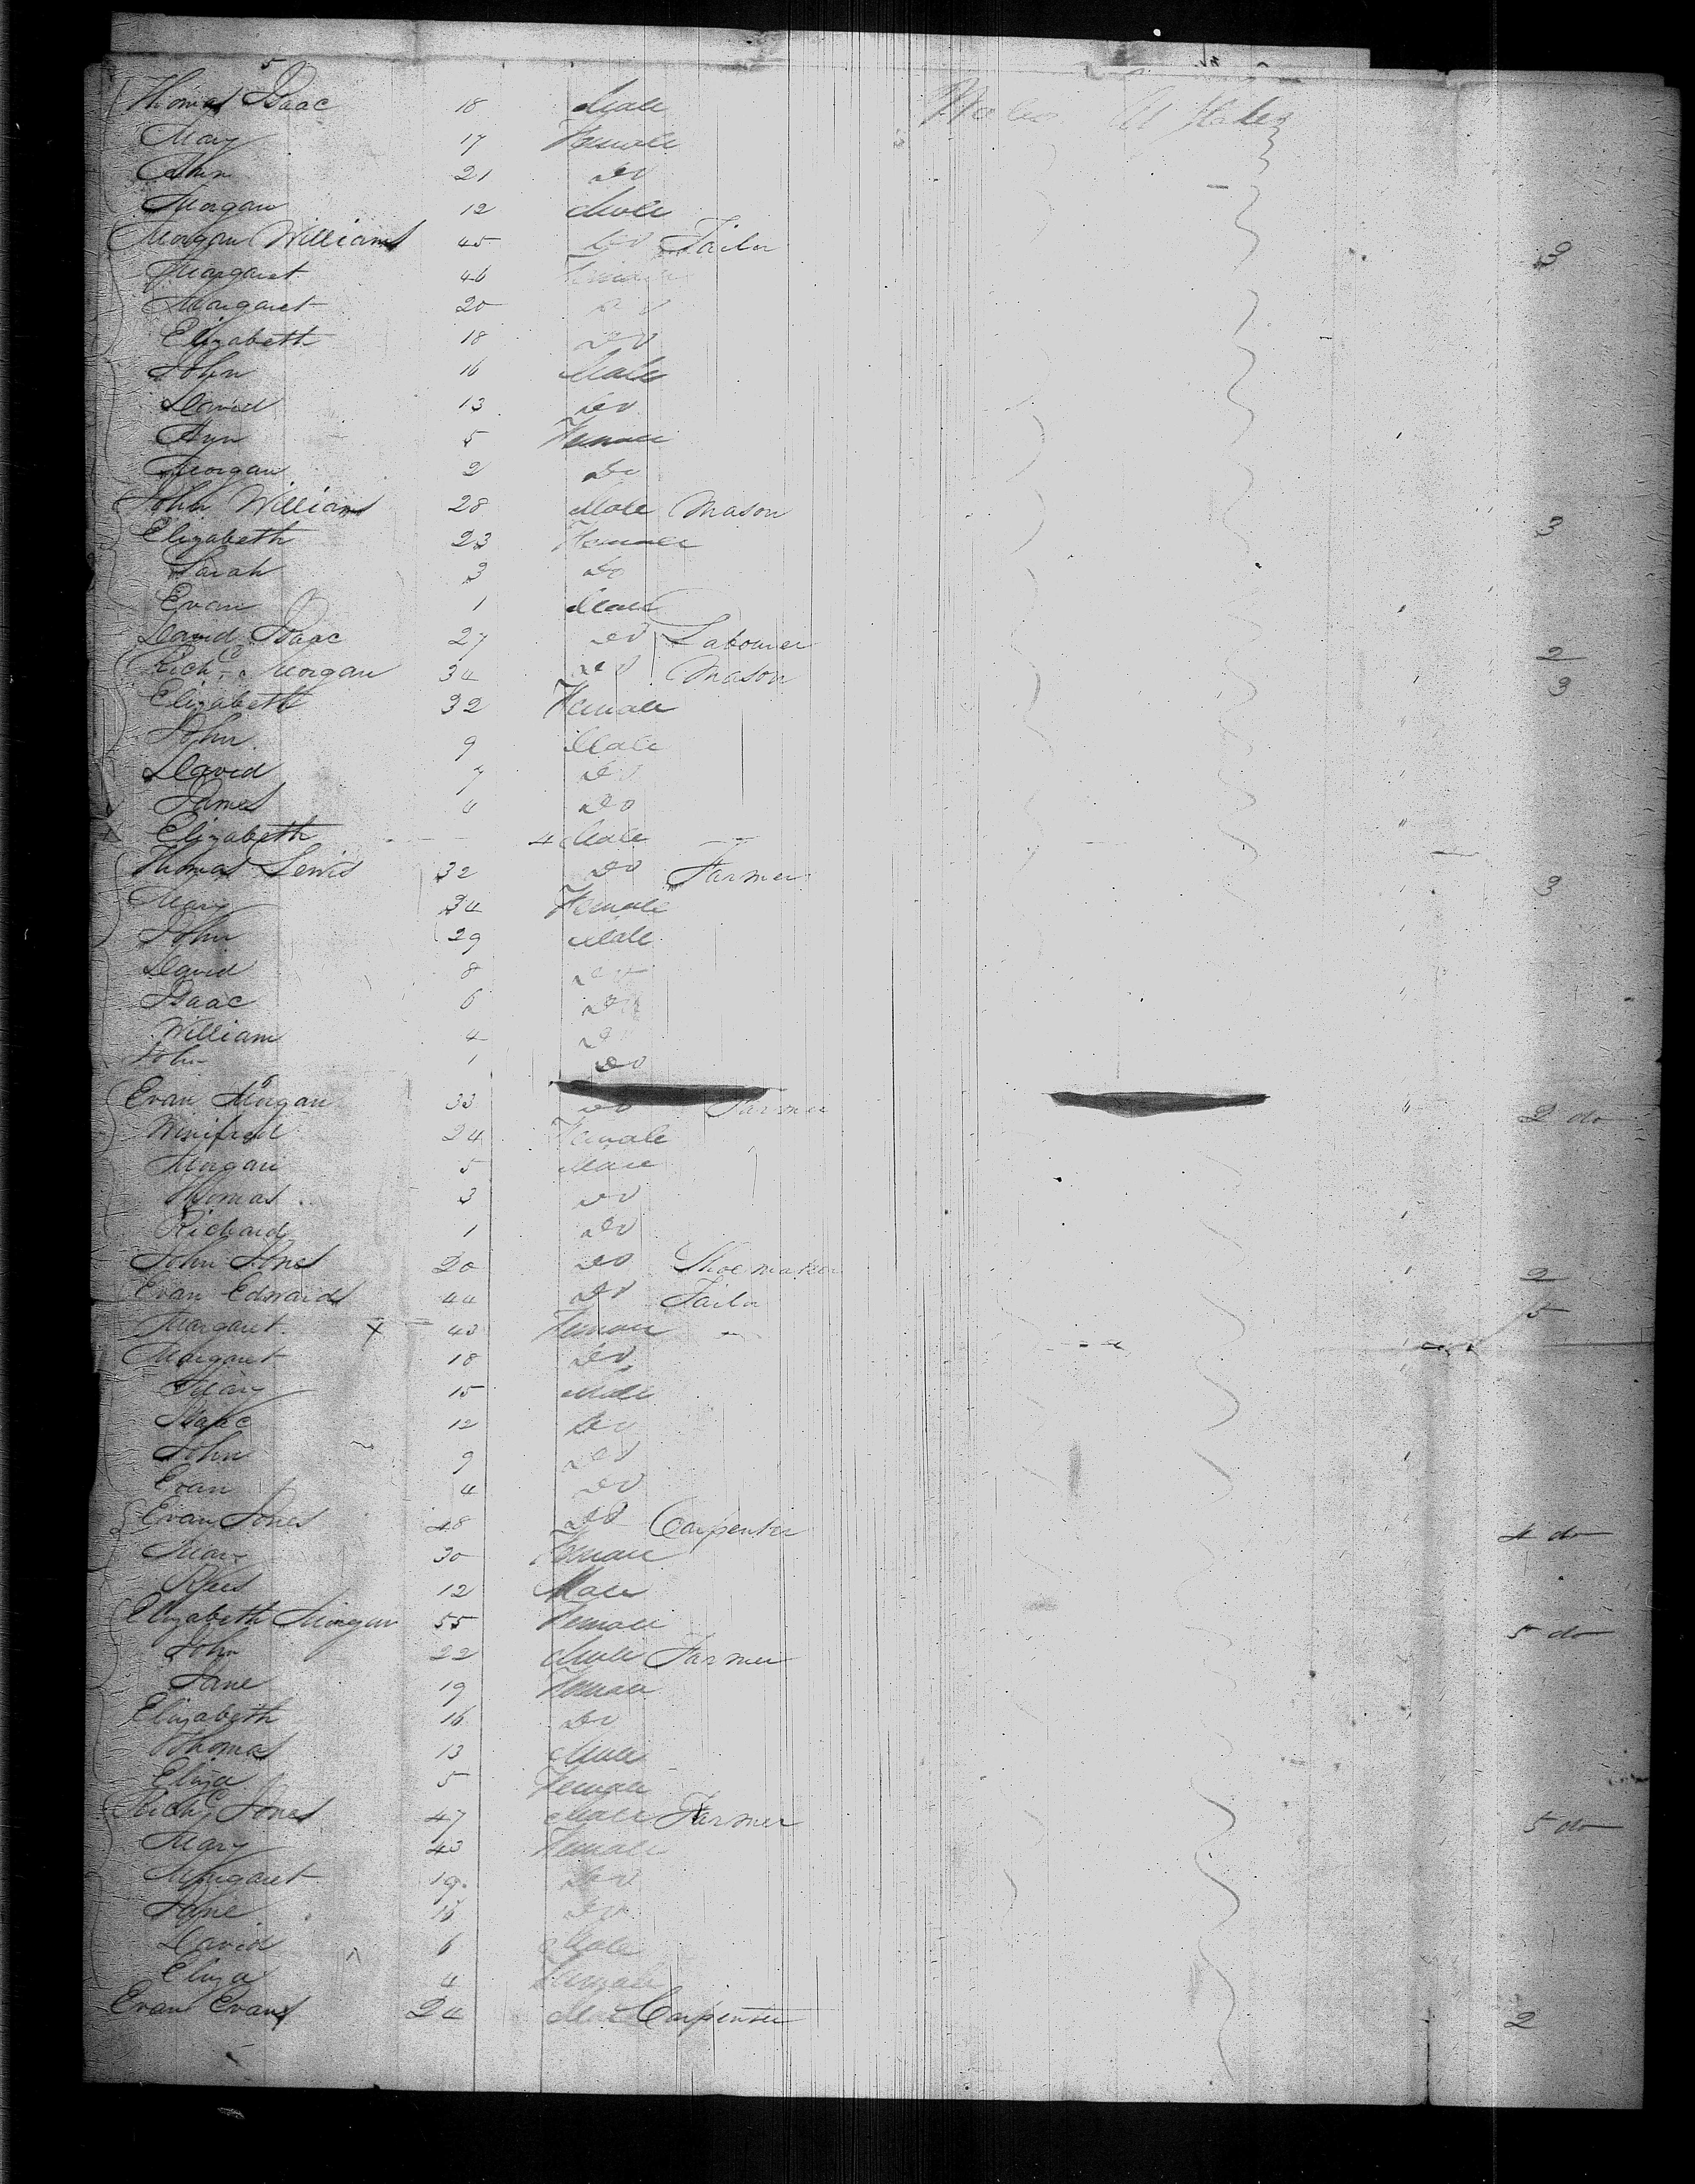 Thomas Isaac 18 Male Wales U States
Mary 17 Female
Ann 21 Do
Morgan 12 Male
Morgan Williams 45 Do Tailor 3
Margaret 46 Female
Margaret 20 Do
Elizabeth 18 Do
John 16 Male
David 13 Do
Ann 5 Female
Morgan 2 Do
John Williams 28 Male Mason 3
Elizabeth 23 Female
Sarah 3 Do
Evan 1 Male
David Isaac 27 Do Labourer 2
Richd Morgan 34 Do Mason 3
Elizabeth 32 Female
John 9 Male
David 7 Do
James 4 Do
Elizabeth 4 Male
Thomas Lewis 32 Do Farmer 3
Mary 34 Female
John 29 Male
David 8 Do
Isaac 6 Do
William 4 Do
John 1 Do
Evan Morgan 33 Do Farmer 2 do
Winifred 24 Female
Morgan 5 Male
Thomas 3 Do
Richard 1 Do
John Jones 20 Do Shoemaker 2
Evan Edwards 44 Do Tailor 5
Margaret x 43 Female
Margaret 18 Do
Mary 15 Male
Isaac 12 Do
John 9 Do
Evan 4 Do
Evan Jones 48 Do Carpenter 4 do
Mary 30 Female
Rees 12 Male
Elizabeth Morgan 55 Female 5 do
John 22 Male Farmer
Jane 19 Female
Elizabeth 16 Do
Thomas 13 Male
Eliza 5 Female
Richd Jones 47 Male Farmer 5 do
Mary 43 Female
Margaret 19 Do
Jane 16 Do
David 6 Male
Eliza 4 Female
Evan Evans 24 Male Carpenter 2